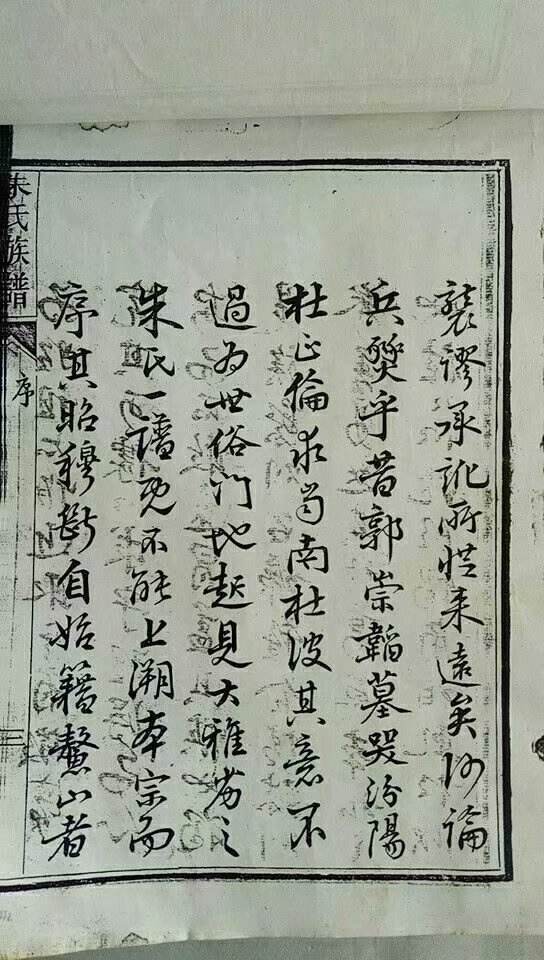 襲謬承訛所從来遠矣何論
兵燹乎昔郭崇韜墓哭汾陽
杜正倫求齒南杜彼其意不
過為世俗門地起見大雅劣之
朱氏一譜既不能上溯本宗而
序其昭穆斷自始籍鰲山者
朱氏族譜
序
二